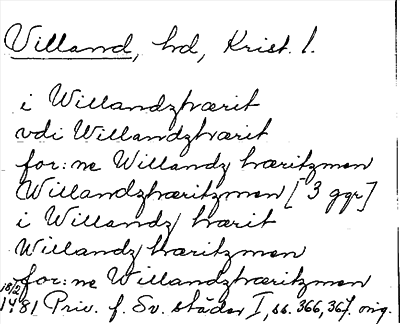 Villand, hd, Krist. l.
i Willandzhærit
vdi Willandzhærit
for:ne Willandz hæritzmen
Willandzhæritzmen [3 ggr]
i Willandz hærit
Willandz hæritzmen
for:ne Willandzhæritzmen
18/2 1481 Priv. f. Sv. städer I, ss. 366, 367. orig.